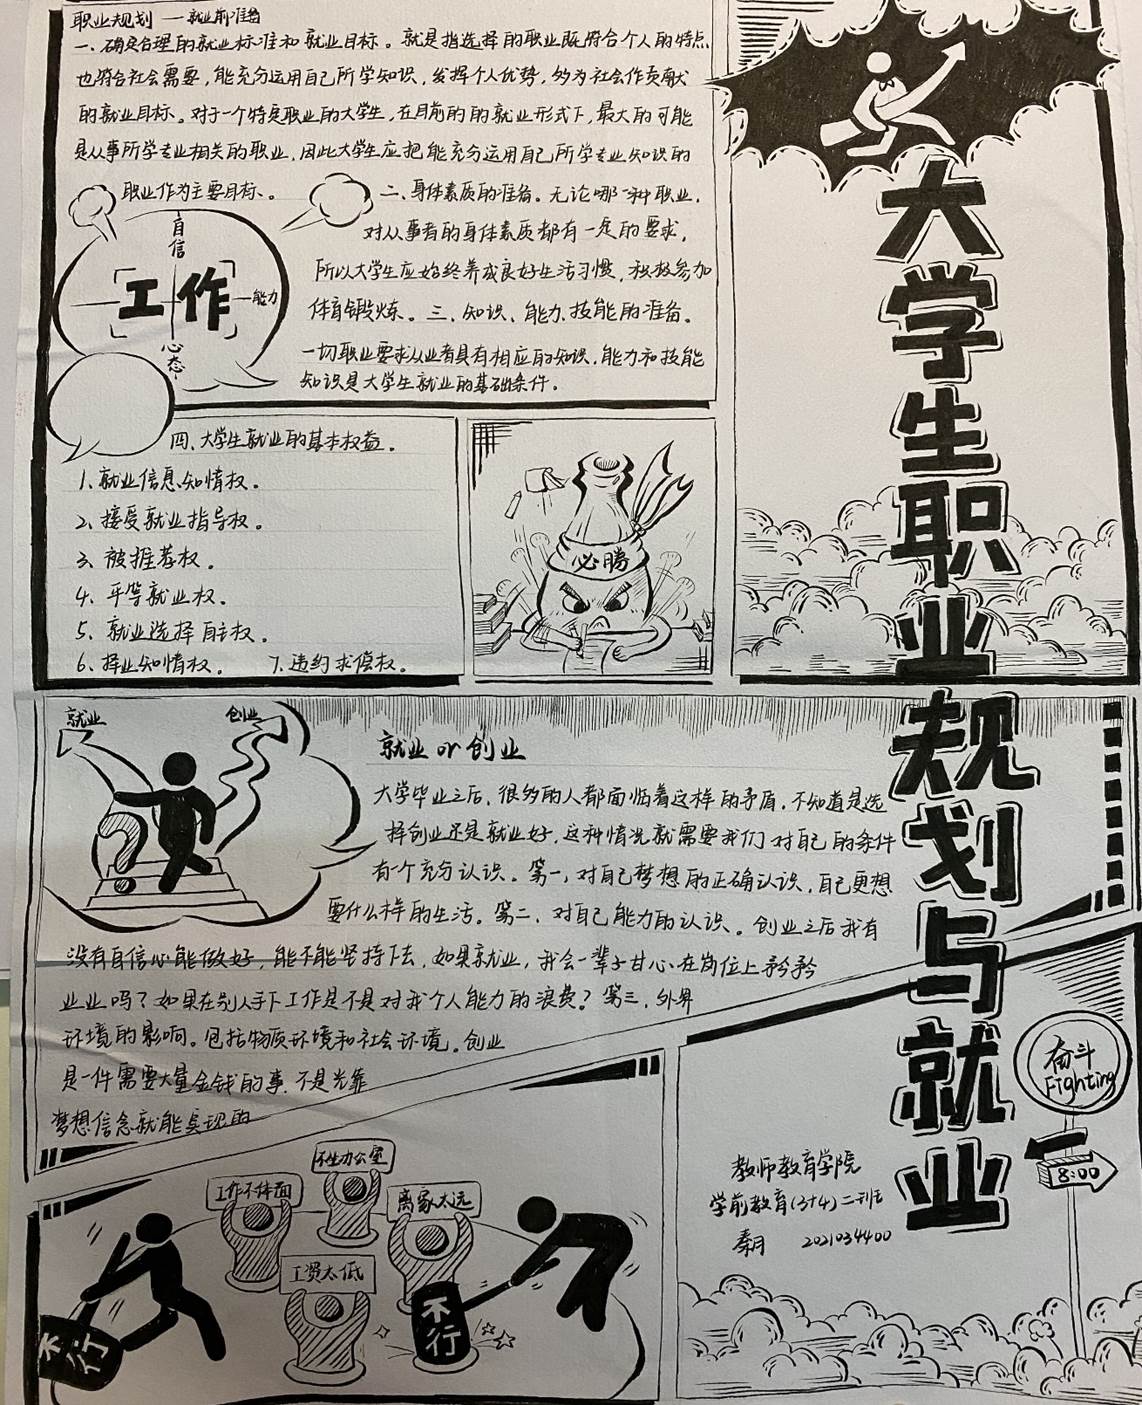 职业规划 — 就业前准备
一、确定合理的就业标准和就业目标。就是指选择的职业既符合个人的特点
也符合社会需要，能充分运用自己所学知识，发挥个人优势，够为社会作贡献
的就业目标。对于一个特定职业的大学生，在目前的的就业形式下，最大的可能
是从事所学专业相关的职业，因此大学生应把能充分运用自己所学专业知识的
职业作为主要目标。
二、身体素质的准备。无论哪一种职业，
对从事者的身体素质都有一定的要求，
所以大学生应始终养成良好生活习惯，积极参加
体育锻炼。三、知识、能力、技能的准备。
一切职业要求从业者具有相应的知识，能力和技能
知识是大学生就业的基础条件。
自信
工作
能力
心态
四、大学生就业的基本权益。
1、就业信息知情权。
2、接受就业指导权。
3、被推荐权。
4、平等就业权。
5、就业选择自主权。
6、择业知情权。 7、违约求偿权。
必勝
大学生职业规划与就业
就业
创业
就业or创业
大学毕业之后，很多的人都面临着这样的矛盾，不知道是选
择创业还是就业好，这种情况就需要我们对自己的条件
有一个充分认识。第一，对自己梦想的正确认识，自己更想
要什么样的生活。第二、对自己能力的认识。创业之后我有
没有自信心能做好，能不能坚持下去，如果就业，我会一辈子甘心在岗位上矜矜
业业吗？如果在别人手下工作是不是对我个人能力的浪费？第三，外界
环境的影响。包括物质环境和社会环境。创业
是一件需要大量金钱的事，不是光靠
梦想信念就能实现的
不坐办公室
工作不体面
离家太远
工资太低
不行
不行
奋斗
Fighting
8:00
教师教育学院
学前教育(3+4)二班
秦月 2021034400